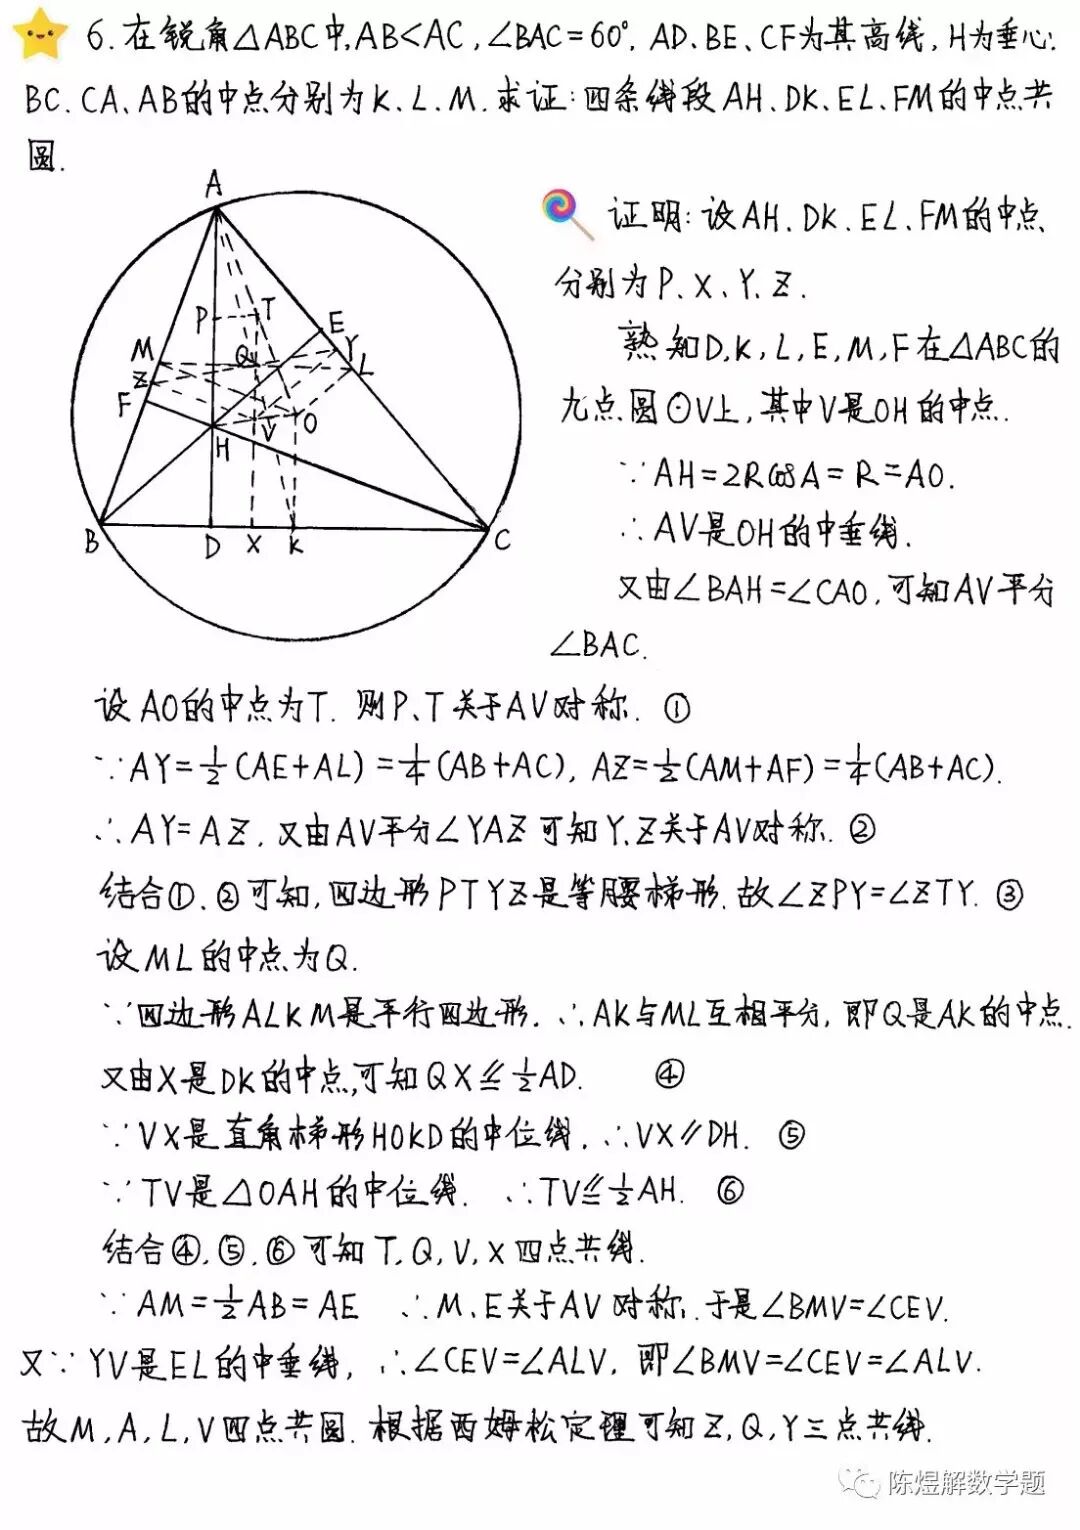 6. 在锐角△ABC中,AB<AC,∠BAC=60°, AD、BE、CF为其高线, H为垂心.
BC、CA、AB的中点分别为K、L、M. 求证: 四条线段AH、DK、EL、FM的中点共
圆.
A
P
T
E
M
Q
Y
Z
L
F
O
V
H
B
D
X
K
C
证明: 设AH、DK、EL、FM的中点
分别为P、X、Y、Z.
熟知D,K,L,E,M,F在△ABC的
九点圆⊙V上, 其中V是OH的中点.
∵AH=2RcosA=R=AO.
∴AV是OH的中垂线.
又由∠BAH=∠CAO, 可知AV平分
∠BAC.
设AO的中点为T. 则P、T关于AV对称. ①
∵AY=½(AE+AL)=¼(AB+AC), AZ=½(AM+AF)=¼(AB+AC).
∴AY=AZ, 又由AV平分∠YAZ可知Y,Z关于AV对称. ②
结合①、②可知, 四边形PTYZ是等腰梯形. 故∠ZPY=∠ZTY. ③
设ML的中点为Q.
∵四边形ALKM是平行四边形, ∴AK与ML互相平分, 即Q是AK的中点.
又由X是DK的中点,可知QX⫽½AD. ④
∵VX是直角梯形HOKD的中位线, ∴VX∥DH. ⑤
∵TV是△OAH的中位线. ∴TV⫽½AH. ⑥
结合④,⑤,⑥可知T,Q,V,X四点共线.
∵AM=½AB=AE ∴M、E关于AV对称, 于是∠BMV=∠CEV.
又∵YV是EL的中垂线, ∴∠CEV=∠ALV, 即∠BMV=∠CEV=∠ALV.
故M,A,L,V四点共圆. 根据西姆松定理可知Z,Q,Y三点共线.
陈煜解数学题